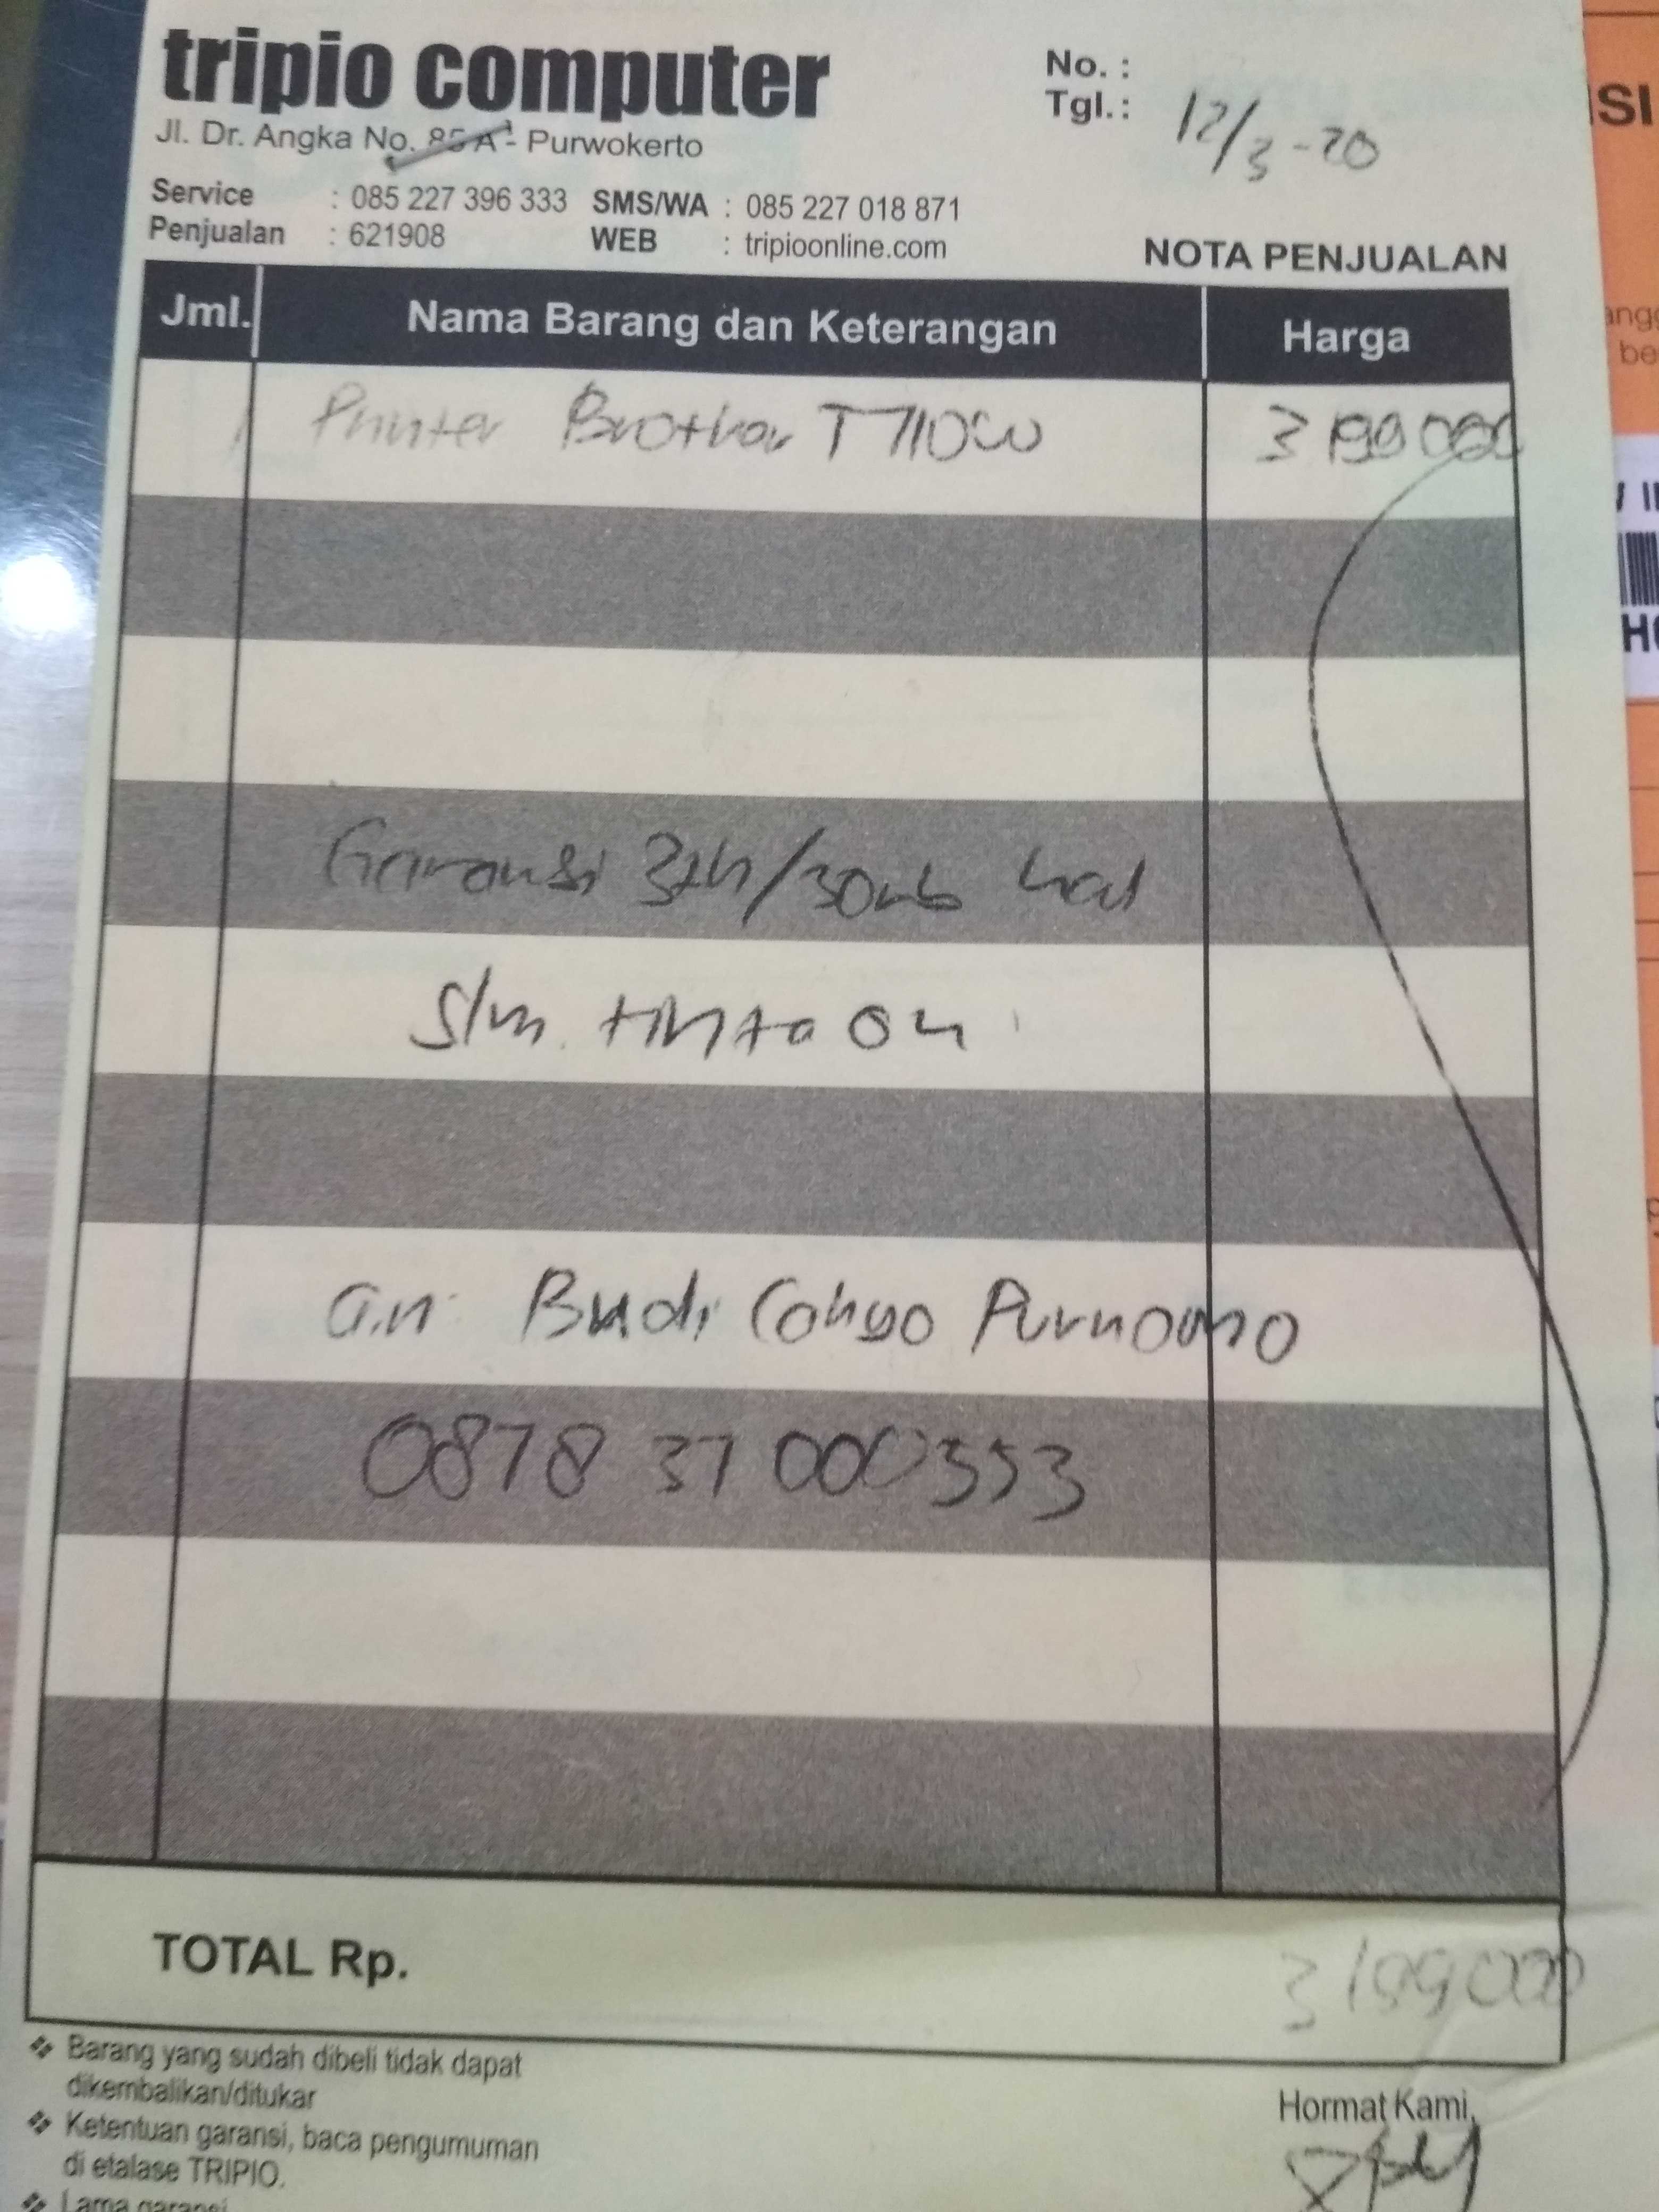 tripio computer
Jl. Dr. Angka No. 85 A - Purwokerto
No. :
Tgl. : 12/3-20
Service : 085 227 396 333 SMS/WA : 085 227 018 871
Penjualan : 621908 WEB : tripioonline.com
NOTA PENJUALAN
Jml. Nama Barang dan Keterangan Harga
1 Printer Brother T710W 3 199 000
Garansi 3th/30rb hal
Slm tinta ori
a.n. Budi Cahyo Purnomo
0878 37 000353
TOTAL Rp. 3199000
Barang yang sudah dibeli tidak dapat
dikembalikan/ditukar
Ketentuan garansi, baca pengumuman
di etalase TRIPIO.
Lama garansi
Hormat Kami,